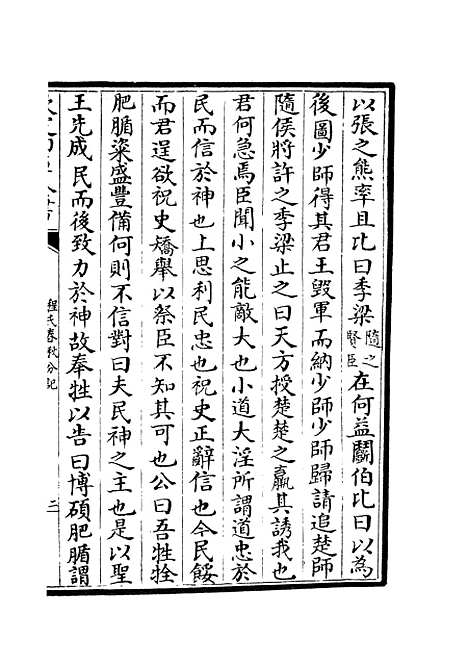 以張之熊率且比曰季梁隨之賢臣在何益鬬伯比曰以為
後圖少師得其君王毀軍而納少師少師歸請追楚師
隨侯將許之季梁止之曰天方授楚楚之羸其誘我也
君何急焉臣聞小之能敵大也小道大淫所謂道忠於
民而信於神也上思利民忠也祝史正辭信也今民餒
而君逞欲祝史矯舉以祭臣不知其可也公曰吾牲牷
肥腯粢盛豐備何則不信對曰夫民神之主也是以聖
王先成民而後致力於神故奉牲以告曰博碩肥腯謂
程氏春秋分記
二